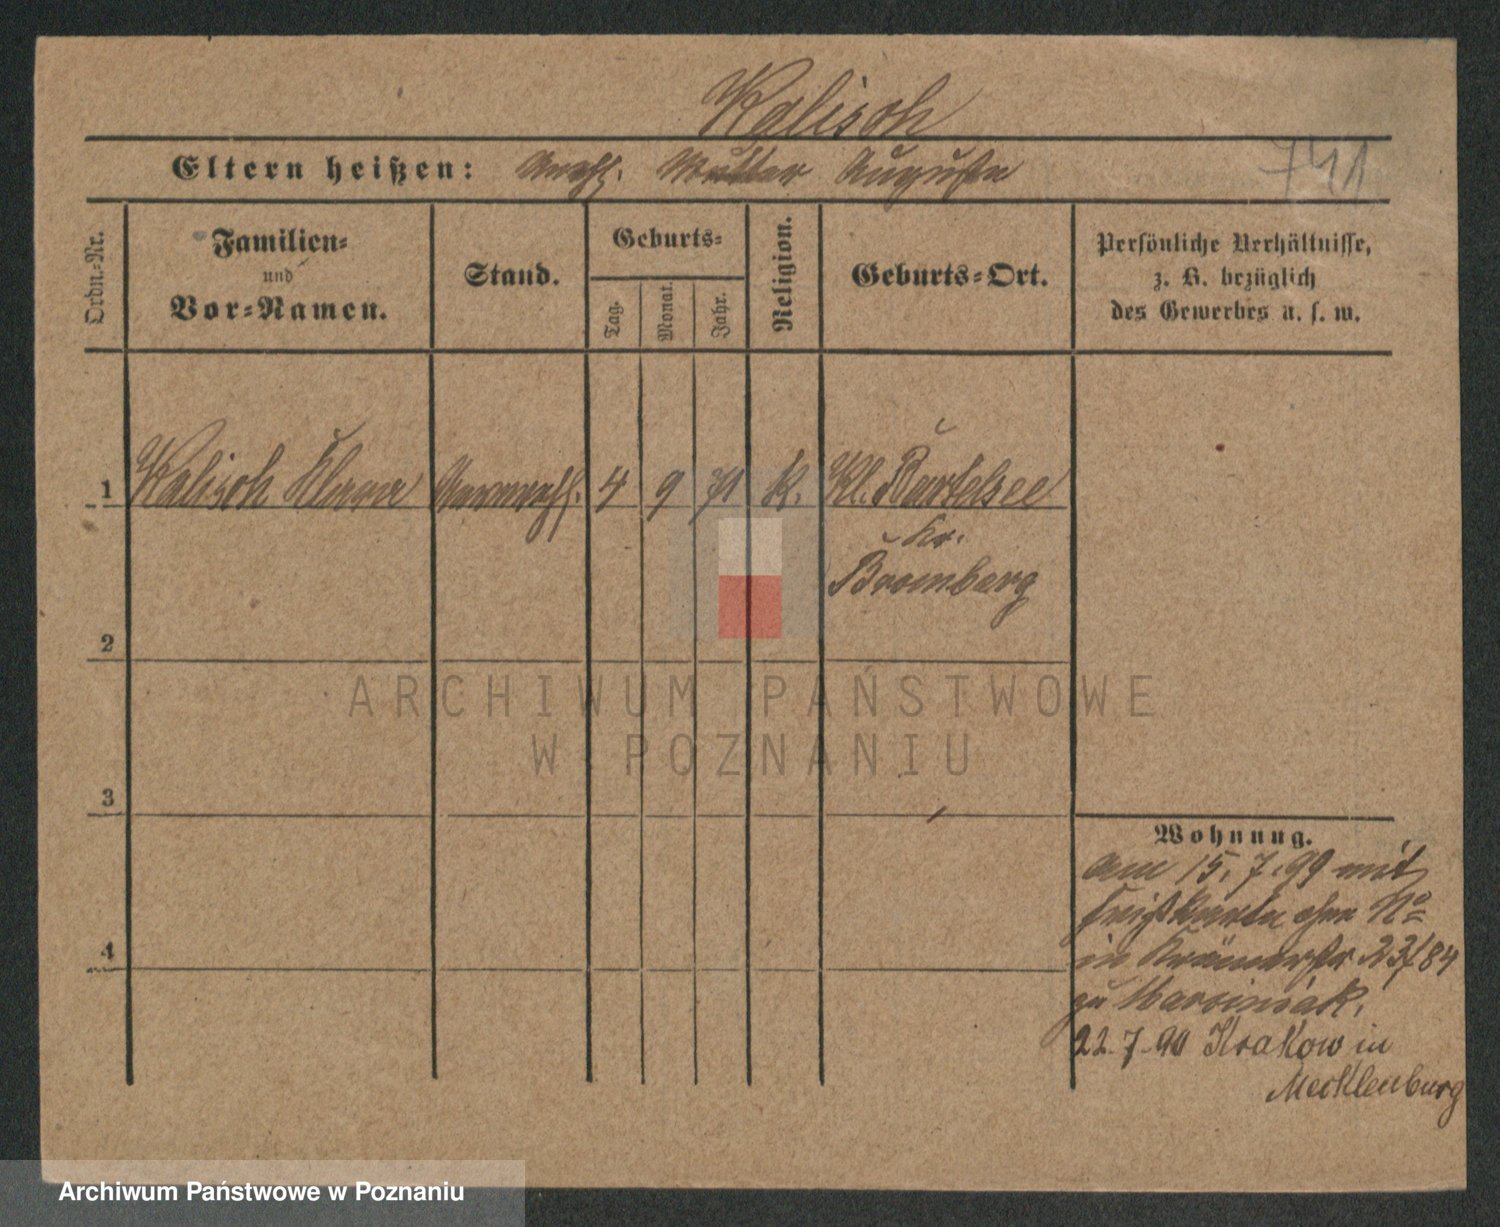 Kalisch
741
Eltern heißen: Unehl. Mutter Auguste
Ordn.-Nr.
Familien-
und
Vor-Namen.
Stand.
Geburts-
Tag.
Monat.
Jahr.
Religion.
Geburts-Ort.
Persönliche Verhältnisse,
z. B. bezüglich
des Gewerbes u. s. w.
1 Kalisch Unverehl. 4 9 71 K. Kl. Bartelsee
Kr.
Bromberg
2
3
4
Wohnung.
am 15. 7. 99 mit
ohne No
in Krämerstr 23/84
zu Marciniak.
22. 7. 90 Krakow in
Mecklenburg
ARCHIWUM PAŃSTWOWE
W POZNANIU
Archiwum Państwowe w Poznaniu